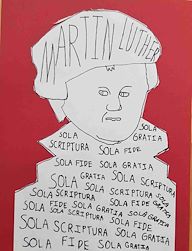 MARTIN LUTHER
SOLA SOLA
SCRIPTURA GRATIA
SOLA FIDE
SOLA FIDE SOLA GRATIA
SOLA GRATIA SOLA SCRIPTURA
SOLA SOLA SCRIPTURA SOLA
SCRIPTURA SOLA FIDE GRATIA
SOLA FIDE SOLA GRATIA SOLA GRATIA
SOLA SCRIPTURA SOLA FIDE
SOLA SCRIPTURA SOLA GRATIA
SOLA FIDE SOLA GRATIA